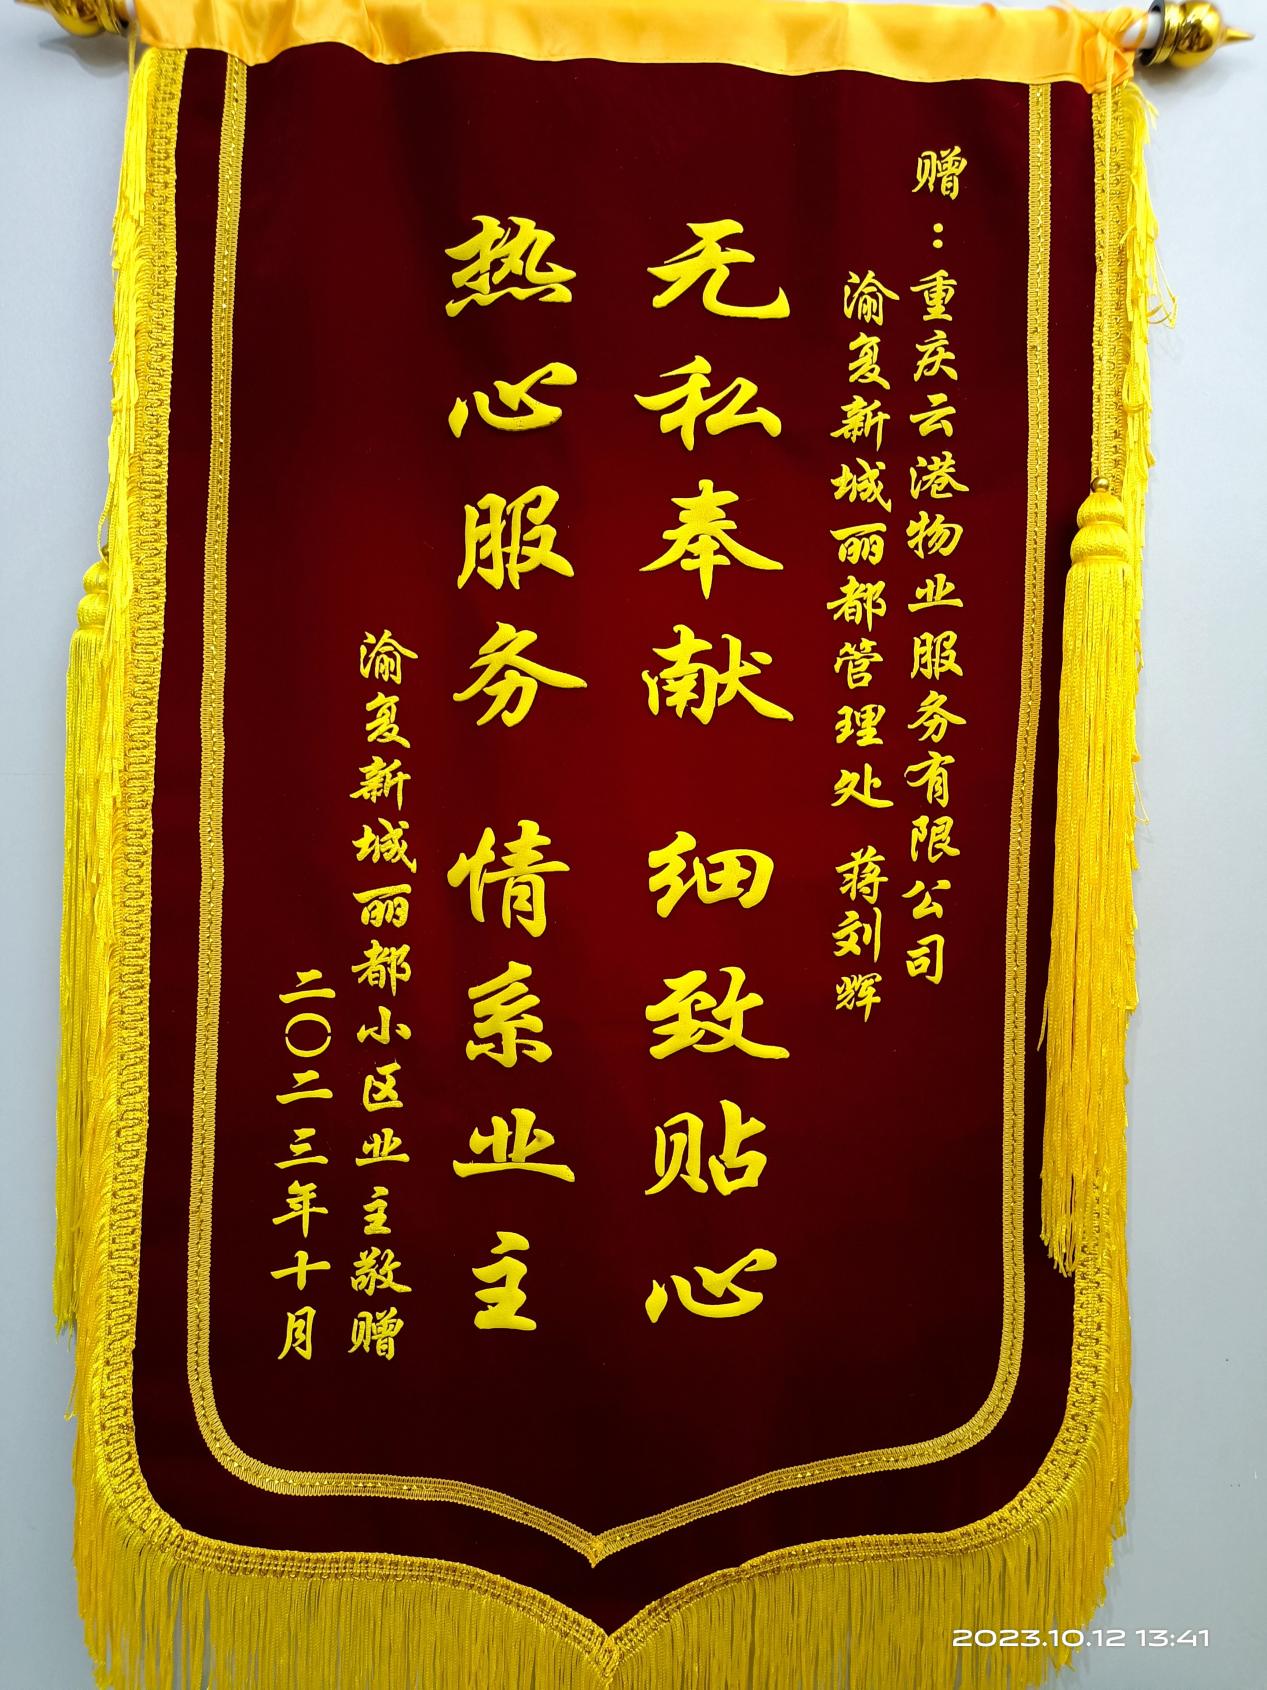 赠：重庆云港物业服务有限公司
渝复新城丽都管理处 蒋刘辉
无私奉献 细致贴心
热心服务 情系业主
渝复新城丽都小区业主敬赠
二〇二三年十月
2023.10.12 13:41